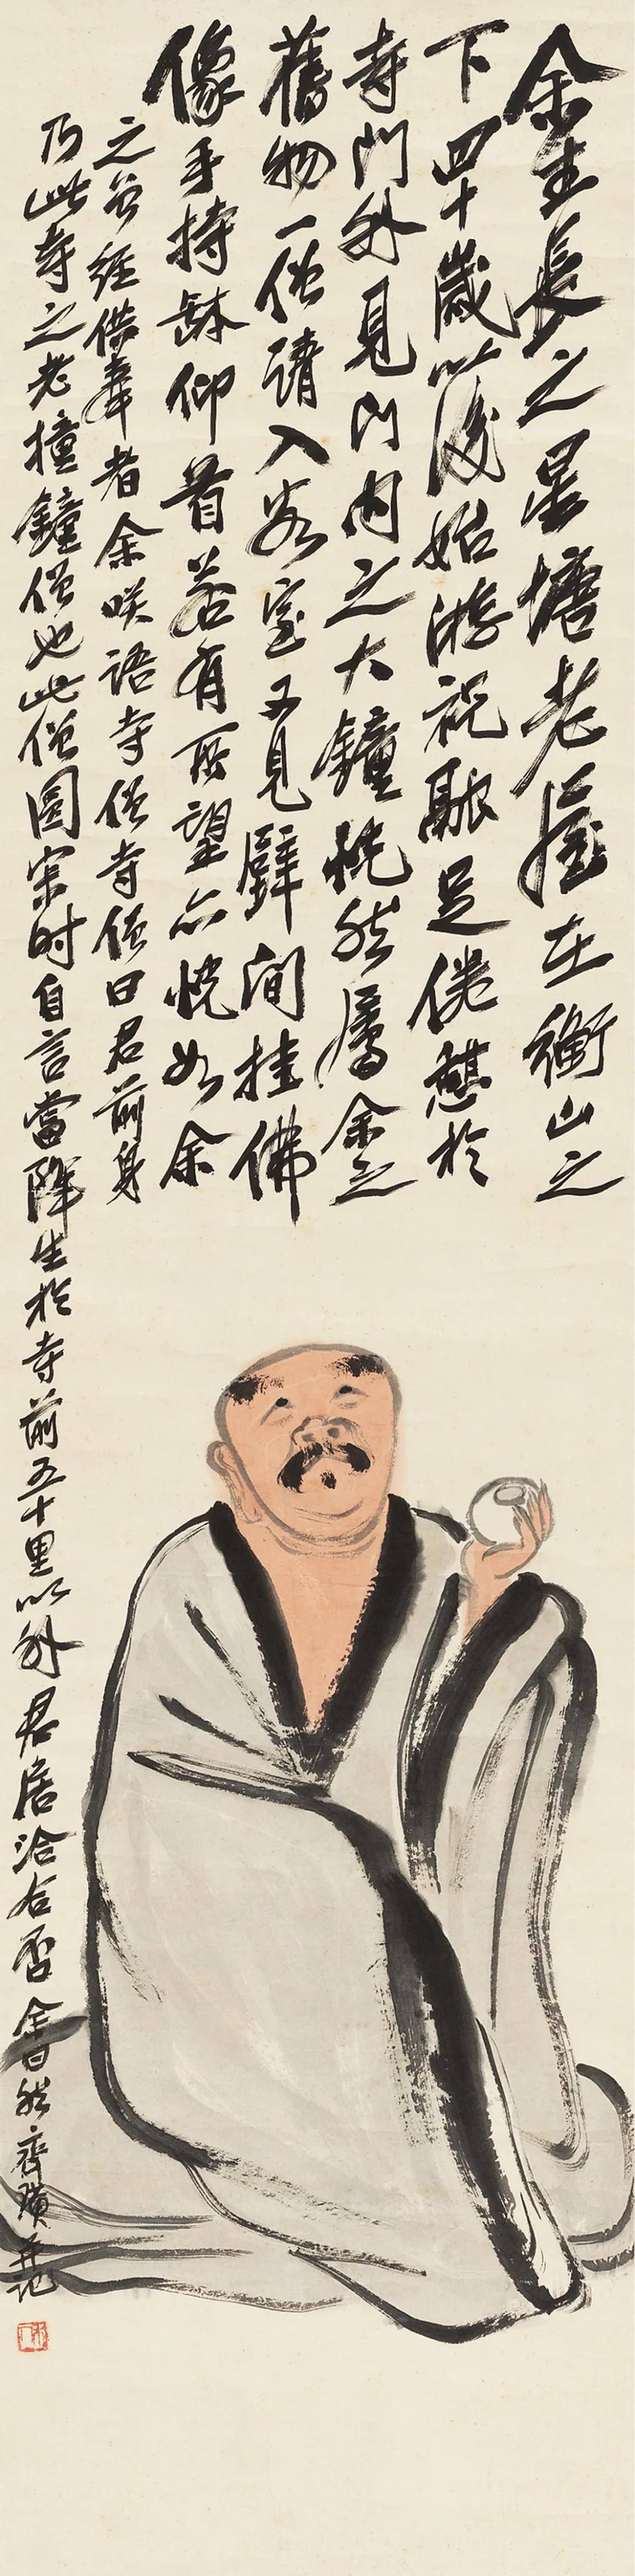 余生長之星塘老屋在衡山之
下四十歲以後始游祝融足倦憇於
寺門外見門内之大鐘恍然屬余之
舊物一僧請入客室又見壁間挂佛
像手持缽仰首若有所望亦恍如余
之曾經供奉者余咲語寺僧寺僧曰君前身
乃此寺之老撞鐘僧也此僧圓宗时自言當降生於寺前五十里以外君居洽合否余曰然齊璜并記